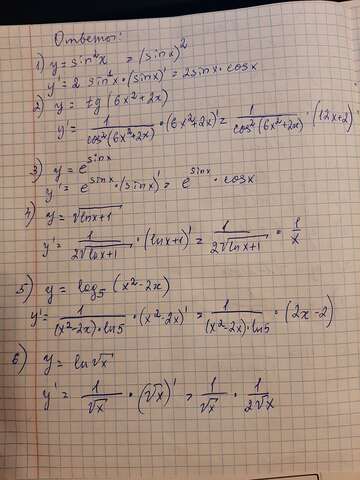 Ответы:
1) y = sin²x = (sinx)²
y' = 2 sin¹x · (sinx)' = 2sinx · cosx
2) y = tg(6x²+2x)
y' = 1/(cos²(6x²+2x)) · (6x²+2x)' = 1/(cos²(6x²+2x)) · (12x+2)
3) y = e^(sinx)
y' = e^(sinx) · (sinx)' = e^(sinx) · cosx
4) y = √(lnx+1)
y' = 1/(2√(lnx+1)) · (lnx+1)' = 1/(2√(lnx+1)) · 1/x
5) y = log₅(x²-2x)
y' = 1/((x²-2x)·ln5) · (x²-2x)' = 1/((x²-2x)·ln5) · (2x-2)
6) y = ln√x
y' = 1/√x · (√x)' = 1/√x · 1/(2√x)